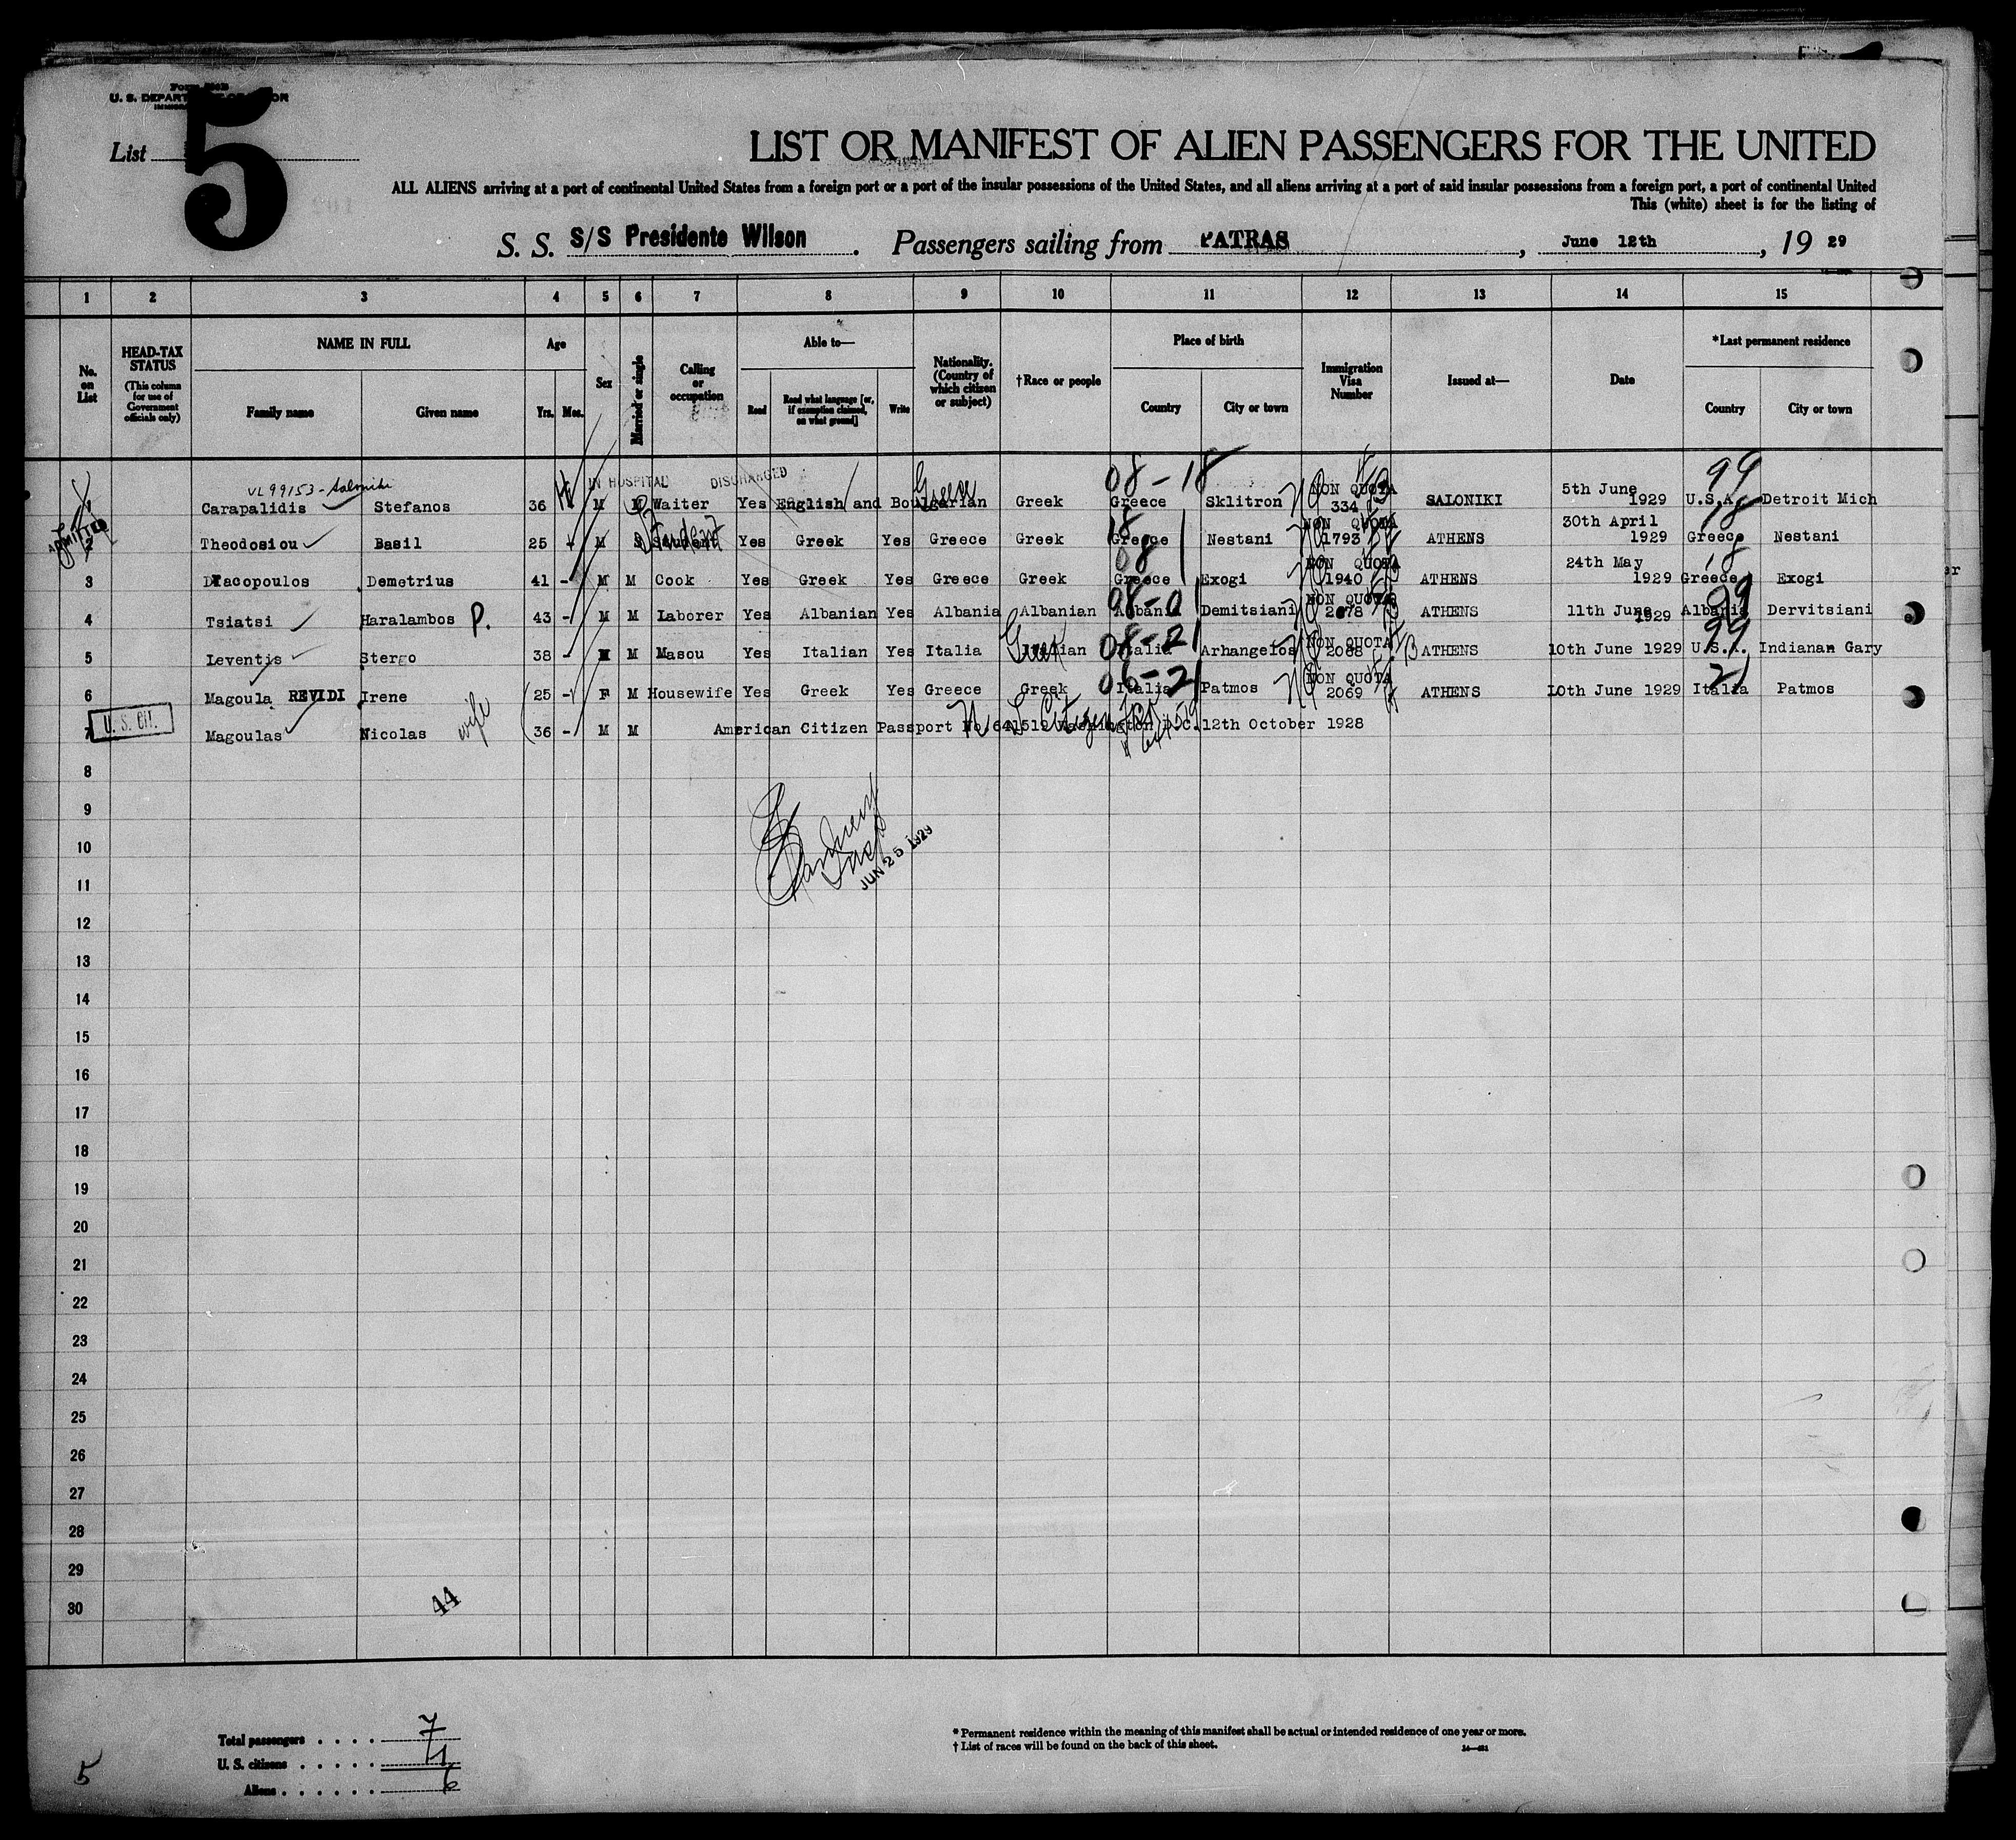 U. S. DEPARTMENT OF LABOR
List 5
LIST OR MANIFEST OF ALIEN PASSENGERS FOR THE UNITED
ALL ALIENS arriving at a port of continental United States from a foreign port or a port of the insular possessions of the United States, and all aliens arriving at a port of said insular possessions from a foreign port, a port of continental United
This (white) sheet is for the listing of
S. S. S/S Presidente Wilson. Passengers sailing from PATRAS, June 12th, 19 29
1 2 3 4 5 6 7 8 9 10 11 12 13 14 15
No. on List
HEAD-TAX STATUS (This column for use of Government officials only)
NAME IN FULL
Family name Given name
Age
Yrs. Mos.
Sex
Married or single
Calling or occupation
Able to—
Read
Read what language [or, if exemption claimed, on what ground]
Write
Nationality. (Country of which citizen or subject)
†Race or people
Place of birth
Country City or town
Immigration Visa Number
Issued at—
Date
*Last permanent residence
Country City or town
VL 99153 - Saloniki IN HOSPITAL DISCHARGED Greece 08-18 99
1 Carapalidis Stefanos 36 M M Waiter Yes English and Boulgarian Greek Greece Sklitron NON QUOTA 334 SALONIKI 5th June 1929 U.S.A. Detroit Mich
ADMITTED
2 Theodosiou Basil 25 M S Student Yes Greek Yes Greece Greek Greece Nestani NON QUOTA 1793 ATHENS 30th April 1929 Greece Nestani
3 Dracopoulos Demetrius 41 - M M Cook Yes Greek Yes Greece Greek Greece Exogi NON QUOTA 1940 ATHENS 24th May 1929 Greece Exogi
4 Tsiatsi Haralambos P. 43 - M M Laborer Yes Albanian Yes Albania Albanian Albania Demitsiani NON QUOTA 2078 ATHENS 11th June 1929 Albania Dervitsiani
5 Leventis Stergo 38 - M M Masou Yes Italian Yes Italia Italian Greek Italia Arhangelos NON QUOTA 2068 ATHENS 10th June 1929 U.S.A. Indianan Gary
6 Magoula REVIDI Irene 25 - F M Housewife Yes Greek Yes Greece Greek Italia Patmos NON QUOTA 2069 ATHENS 10th June 1929 Italia Patmos
U. S. Cit.
7 Magoulas Nicolas wife 36 - M M American Citizen Passport No.641519 Washington D.C. 12th October 1928
8
9
JUN 25 1929
10
11
12
13
14
15
16
17
18
19
20
21
22
23
24
25
26
27
28
29
30
44
Total passengers . . . . 7
U. S. citizens . . . . . 1
Aliens . . . . . . 6
5
* Permanent residence within the meaning of this manifest shall be actual or intended residence of one year or more.
† List of races will be found on the back of this sheet.